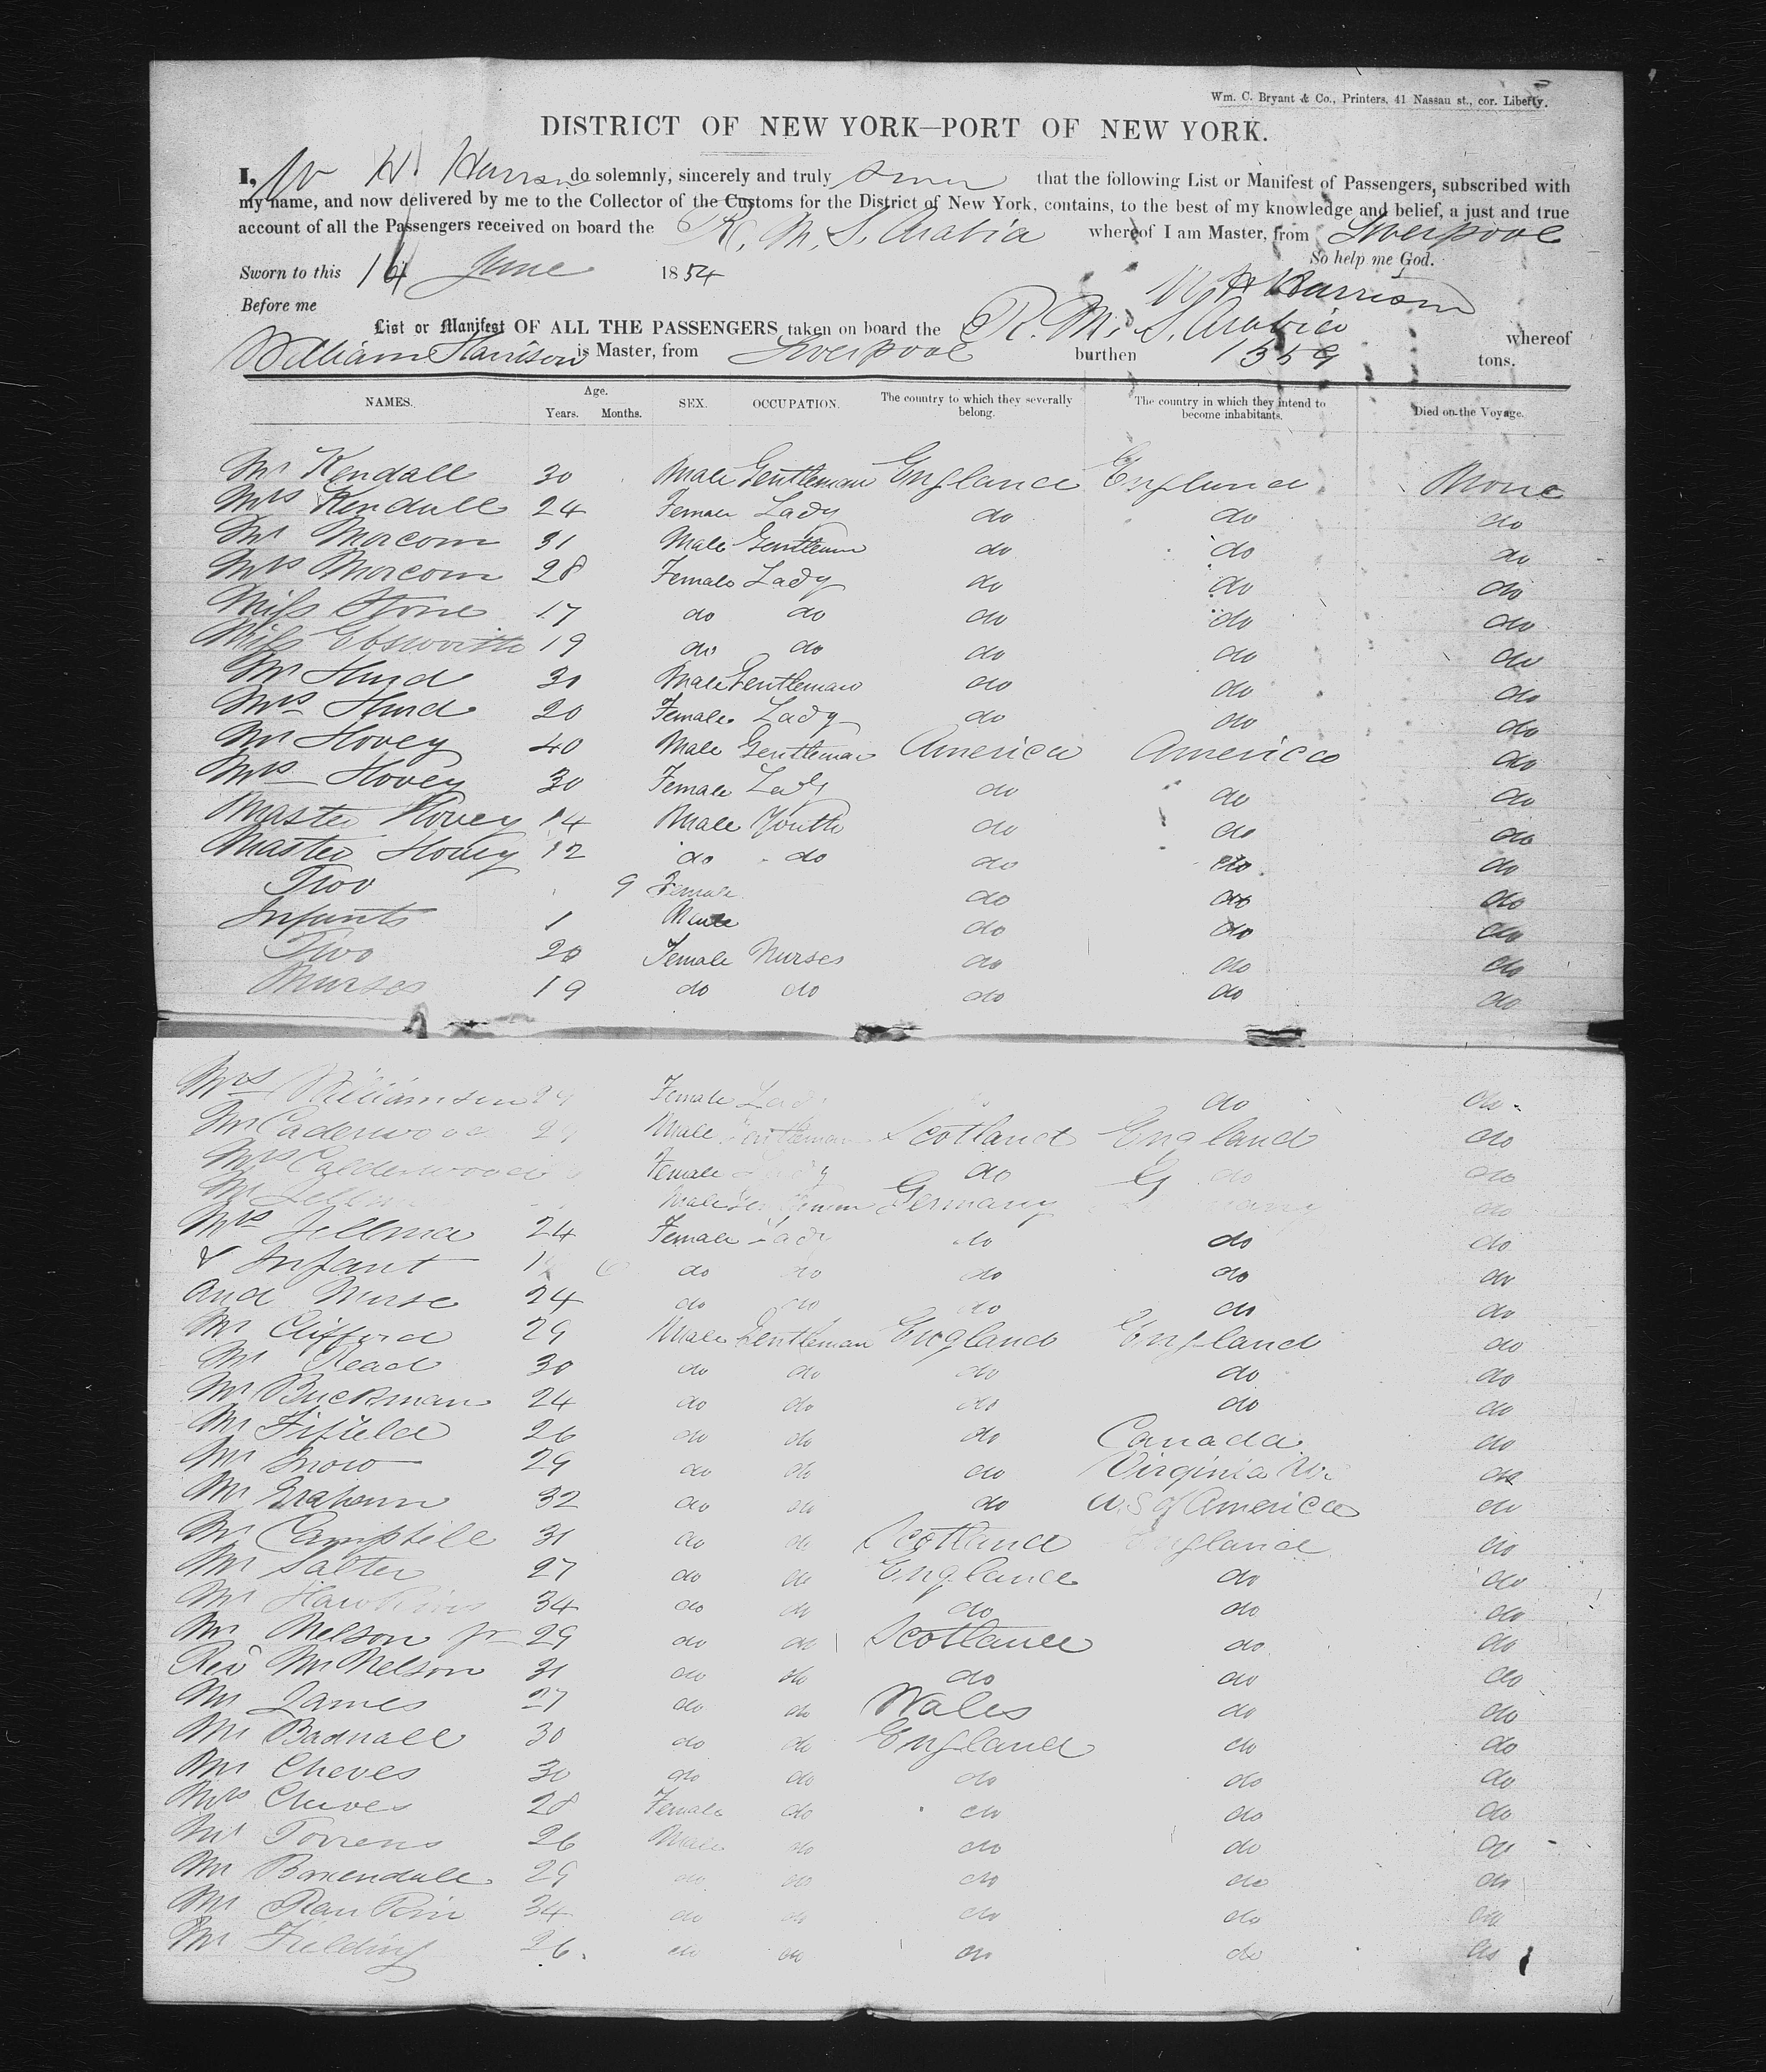 Wm. C. Bryant & Co., Printers, 41 Nassau st., cor. Liberty.
DISTRICT OF NEW YORK—PORT OF NEW YORK.
I, W H Harrison do solemnly, sincerely and truly swear that the following List or Manifest of Passengers, subscribed with
my name, and now delivered by me to the Collector of the Customs for the District of New York, contains, to the best of my knowledge and belief, a just and true
account of all the Passengers received on board the R. M. S. Arabia whereof I am Master, from Liverpool
So help me God.
Sworn to this 14 June 1854
W H Harrison
Before me
List or Manifest OF ALL THE PASSENGERS taken on board the R. M. S. Arabia whereof
William Harrison is Master, from Liverpool burthen 1359 tons.
NAMES. Age. Years. Months. SEX. OCCUPATION. The country to which they severally belong. The country in which they intend to become inhabitants. Died on the Voyage.
Mr Kendall 30 Male Gentleman England England None
Mrs Kendall 24 Female Lady do do do
Mr Morcom 31 Male Gentleman do do do
Mrs Morcom 28 Female Lady do do do
Miss Stone 17 do do do do do
Miss Ebsworth 19 do do do do do
Mr Hurd 30 Male Gentleman do do do
Mrs Hurd 20 Female Lady do do do
Mr Hovey 40 Male Gentleman America America do
Mrs Hovey 30 Female Lady do do do
Master Hovey 14 Male Youth do do do
Master Hovey 12 do do do do do
Two 9 Female do do do
Infants 1 Male do do do
Two 20 Female Nurses do do do
Nurses 19 do do do do do
Mrs Williamson Female Lady do do
Mr Caderwood 29 Male Gentleman Scotland England do
Mrs Calderwood Female Lady do do do
Mr Male Gentleman Germany do
Mrs Jellma 24 Female Lady do do do
& Infant 1 6 do do do do do
and Nurse 24 do do do do do
Mr Clifford 29 Male Gentleman England England do
Mr Read 30 do do do do do
Mr Buckman 24 do do do do do
Mr Fifield 26 do do do Canada do
Mr Snow 29 do do do Virginia do
Mr Graham 32 do do do U.S of America do
Mr Camphill 31 do do Scotland England do
Mr Salter 27 do do England do do
Mr Hawkins 34 do do do do do
Mr Nelson jr 29 do do Scotland do do
Rev Mr Nelson 31 do do do do do
Mr James 27 do do Wales do do
Mr Badnall 30 do do England do do
Mr Cheves 30 do do do do do
Mrs Cheves 28 Female do do do do
Mr Torrens 26 Male do do do do
Mr Baxendale 29 do do do do do
Mr Rankin 34 do do do do do
Mr Fielding 26 do do do do do